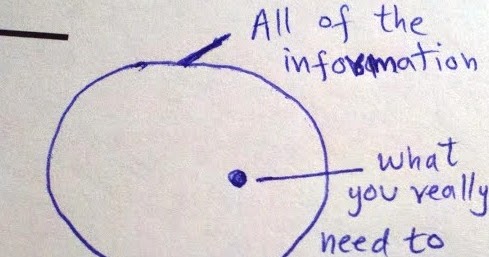 All of the
information
what
you really
need to